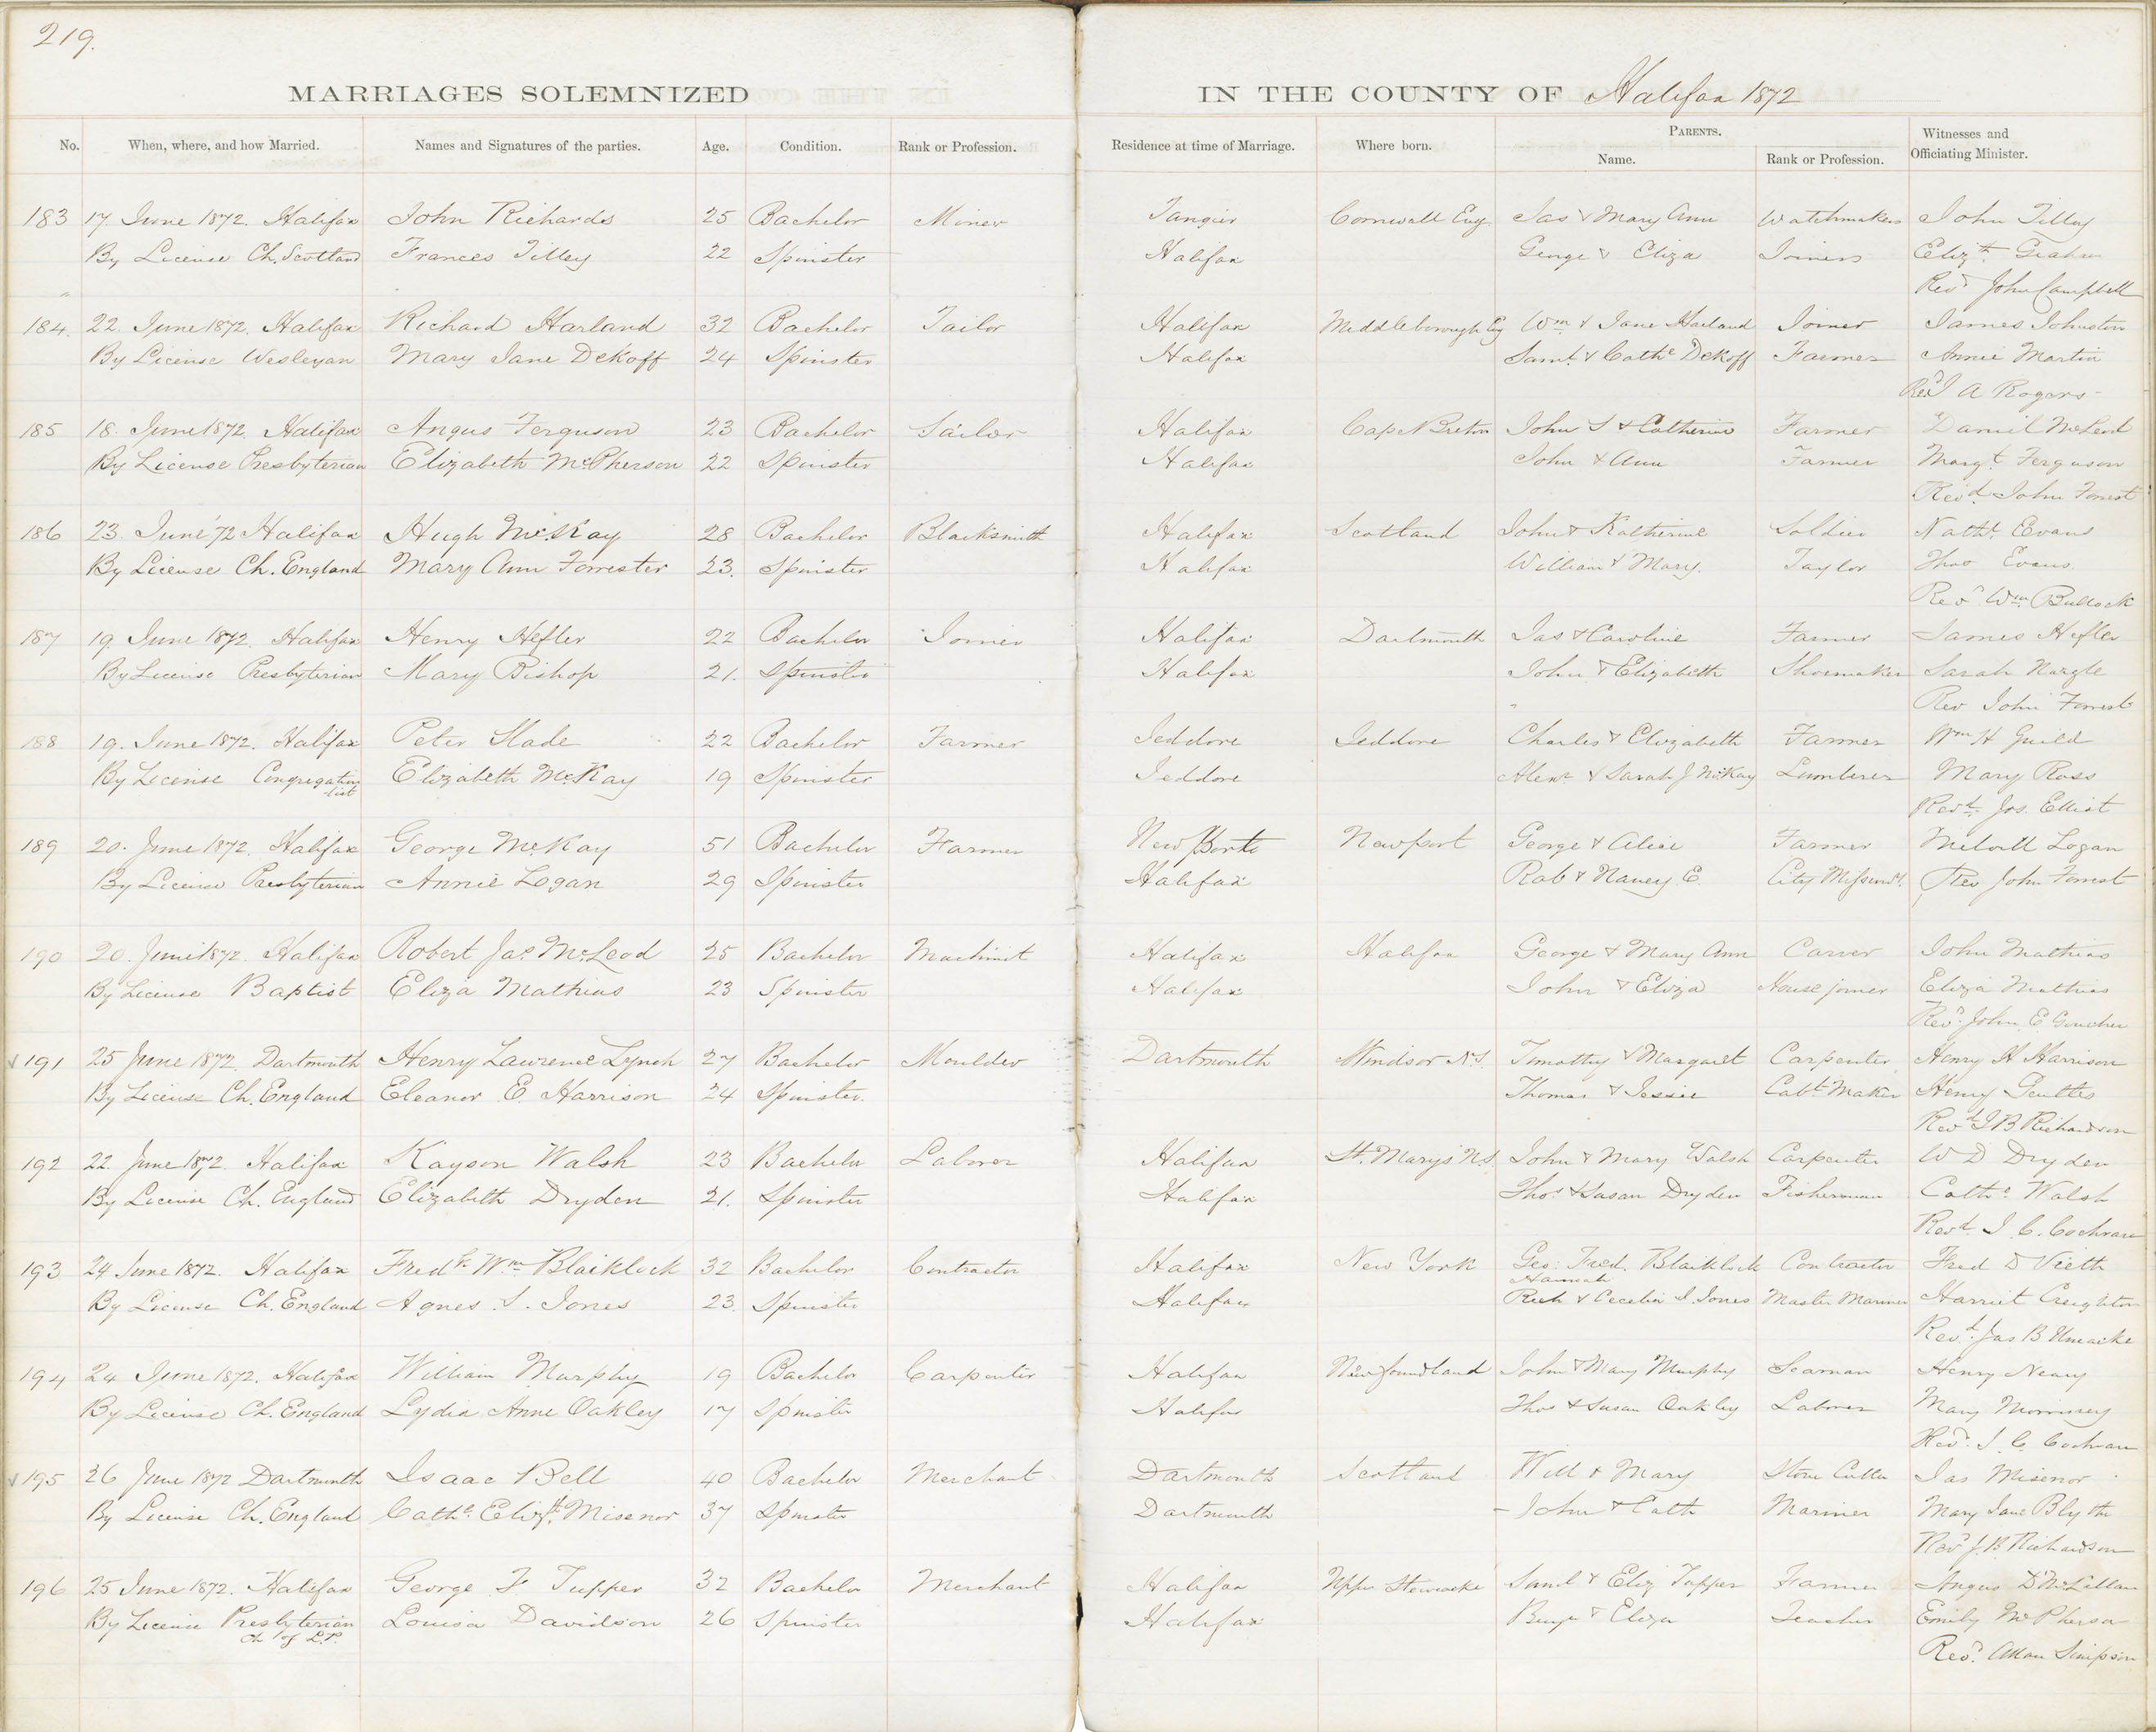 219.
MARRIAGES SOLEMNIZED IN THE COUNTY OF Halifax 1872
No. When, where, and how Married. Names and Signatures of the parties. Age. Condition. Rank or Profession. Residence at time of Marriage. Where born. PARENTS. Name. Rank or Profession. Witnesses and Officiating Minister.
183 17. June 1872. Halifax John Richards 25 Bachelor Miner Tangier Cornwall Eng. Jas & Mary Ann Watchmaker John Tilley
By License Ch. Scotland Frances Tilley 22 Spinster Halifax George & Eliza Joiners Elizth
Revd John Campbell
184. 22. June 1872. Halifax Richard Harland 32 Bachelor Tailor Halifax Middleborough Eng Wm & Jane Harland Joiner James Johnston
By License Wesleyan Mary Jane Dekoff 24 Spinster Halifax Saml & Cathe Dekoff Farmer Annie Martin
Revd J A Rogers
185 18. June 1872. Halifax Angus Ferguson 23 Bachelor Sailor Halifax Cape Breton John S & Catherine Farmer Daniel McLeod
By License Presbyterian Elizabeth McPherson 22 Spinster Halifax John & Ann Farmer Margt Ferguson
Revd John Forrest
186 23. June '72 Halifax Hugh McKay 28 Bachelor Blacksmith Halifax Scotland John & Katherine Soldier Nathl Evans
By License Ch. England Mary Ann Forrester 23. Spinster Halifax William & Mary. Taylor Thos Evans.
Revd Wm Bullock
187 19. June 1872. Halifax Henry Hefler 22 Bachelor Joiner Halifax Dartmouth Jas & Caroline Farmer James Hefler
By License Presbyterian Mary Bishop 21. Spinster Halifax John & Elizabeth Shoemaker Sarah Nargle
Rev John Forrest
188 19. June 1872. Halifax Peter Slade 22 Bachelor Farmer Jeddore Jeddore Charles & Elizabeth Farmer Wm H Guild
By License Congregation Elizabeth McKay 19 Spinster Jeddore Alexr & Sarah J McKay Lumberer Mary Ross
-list Revd. Jos. Elliot
189 20. June 1872. Halifax George McKay 51 Bachelor Farmer New Port Newport George & Alice Farmer Melvill Logan
By License Presbyterian Annie Logan 29 Spinster Halifax Rob & Nancy E. City Missiony. Rev John Forrest
190 20. June 1872. Halifax Robert Jas McLeod 25 Bachelor Machinist Halifax Halifax George & Mary Ann Carver John Mathias
By License Baptist Eliza Mathias 23 Spinster Halifax John & Eliza House joiner Eliza Mathias
Revd. John E Goucher
191 25 June 1872. Dartmouth Henry Lawrence Lynch 27 Bachelor Moulder Dartmouth Windsor N.S. Timothy & Margaret Carpenter Henry H Harrison
By License Ch. England Eleanor E. Harrison 24 Spinster. Thomas & Jessie Cabt Maker Henry
Revd J B Richardson
192 22. June 1872. Halifax Kayson Walsh 23 Bachelor Laborer Halifax St. Marys N.S. John & Mary Walsh Carpenter W D Dryden
By License Ch. England Elizabeth Dryden 21. Spinster Halifax Thos. & Susan Dryden Fisherman Cathe Walsh
Revd. J. C. Cochran
193 24 June 1872. Halifax Fredk Wm Blaiklock 32 Bachelor Contractor Halifax New York Geo: Fred. Blaiklock Contractor Fred D Vieth
Hannah
By License Ch. England Agnes S. Jones 23. Spinster Halifax Rich & Cecelia S. Jones Master Mariner Harriet Creighton
Revd. Jas B Uniacke
194 24 June 1872. Halifax William Murphy 19 Bachelor Carpenter Halifax Newfoundland John & Mary Murphy Seaman Henry Neary
By License Ch. England Lydia Anne Oakley 17 Spinster Halifax Thos & Susan Oakley Laborer Mary Morrissey
Revd. J. C. Cochran
195 26 June 1872 Dartmouth Isaac Bell 40 Bachelor Merchant Dartmouth Scotland Will & Mary Stone Cutter Jas Misenor
By License Ch. England Cathe. Elizth. Misenor 37 Spinster Dartmouth John & Cath Mariner Mary Jane Blythe
Revd J. B. Richardson
196 25 June 1872. Halifax George F Tupper 32 Bachelor Merchant Halifax Upper Stewiacke Saml & Eliz Tupper Farmer Angus D McLellan
By License Presbyterian Louisa Davidson 26 Spinster Halifax Benj & Eliza Teacher Emily McPherson
Ch of L.P. Revd. Allan Simpson